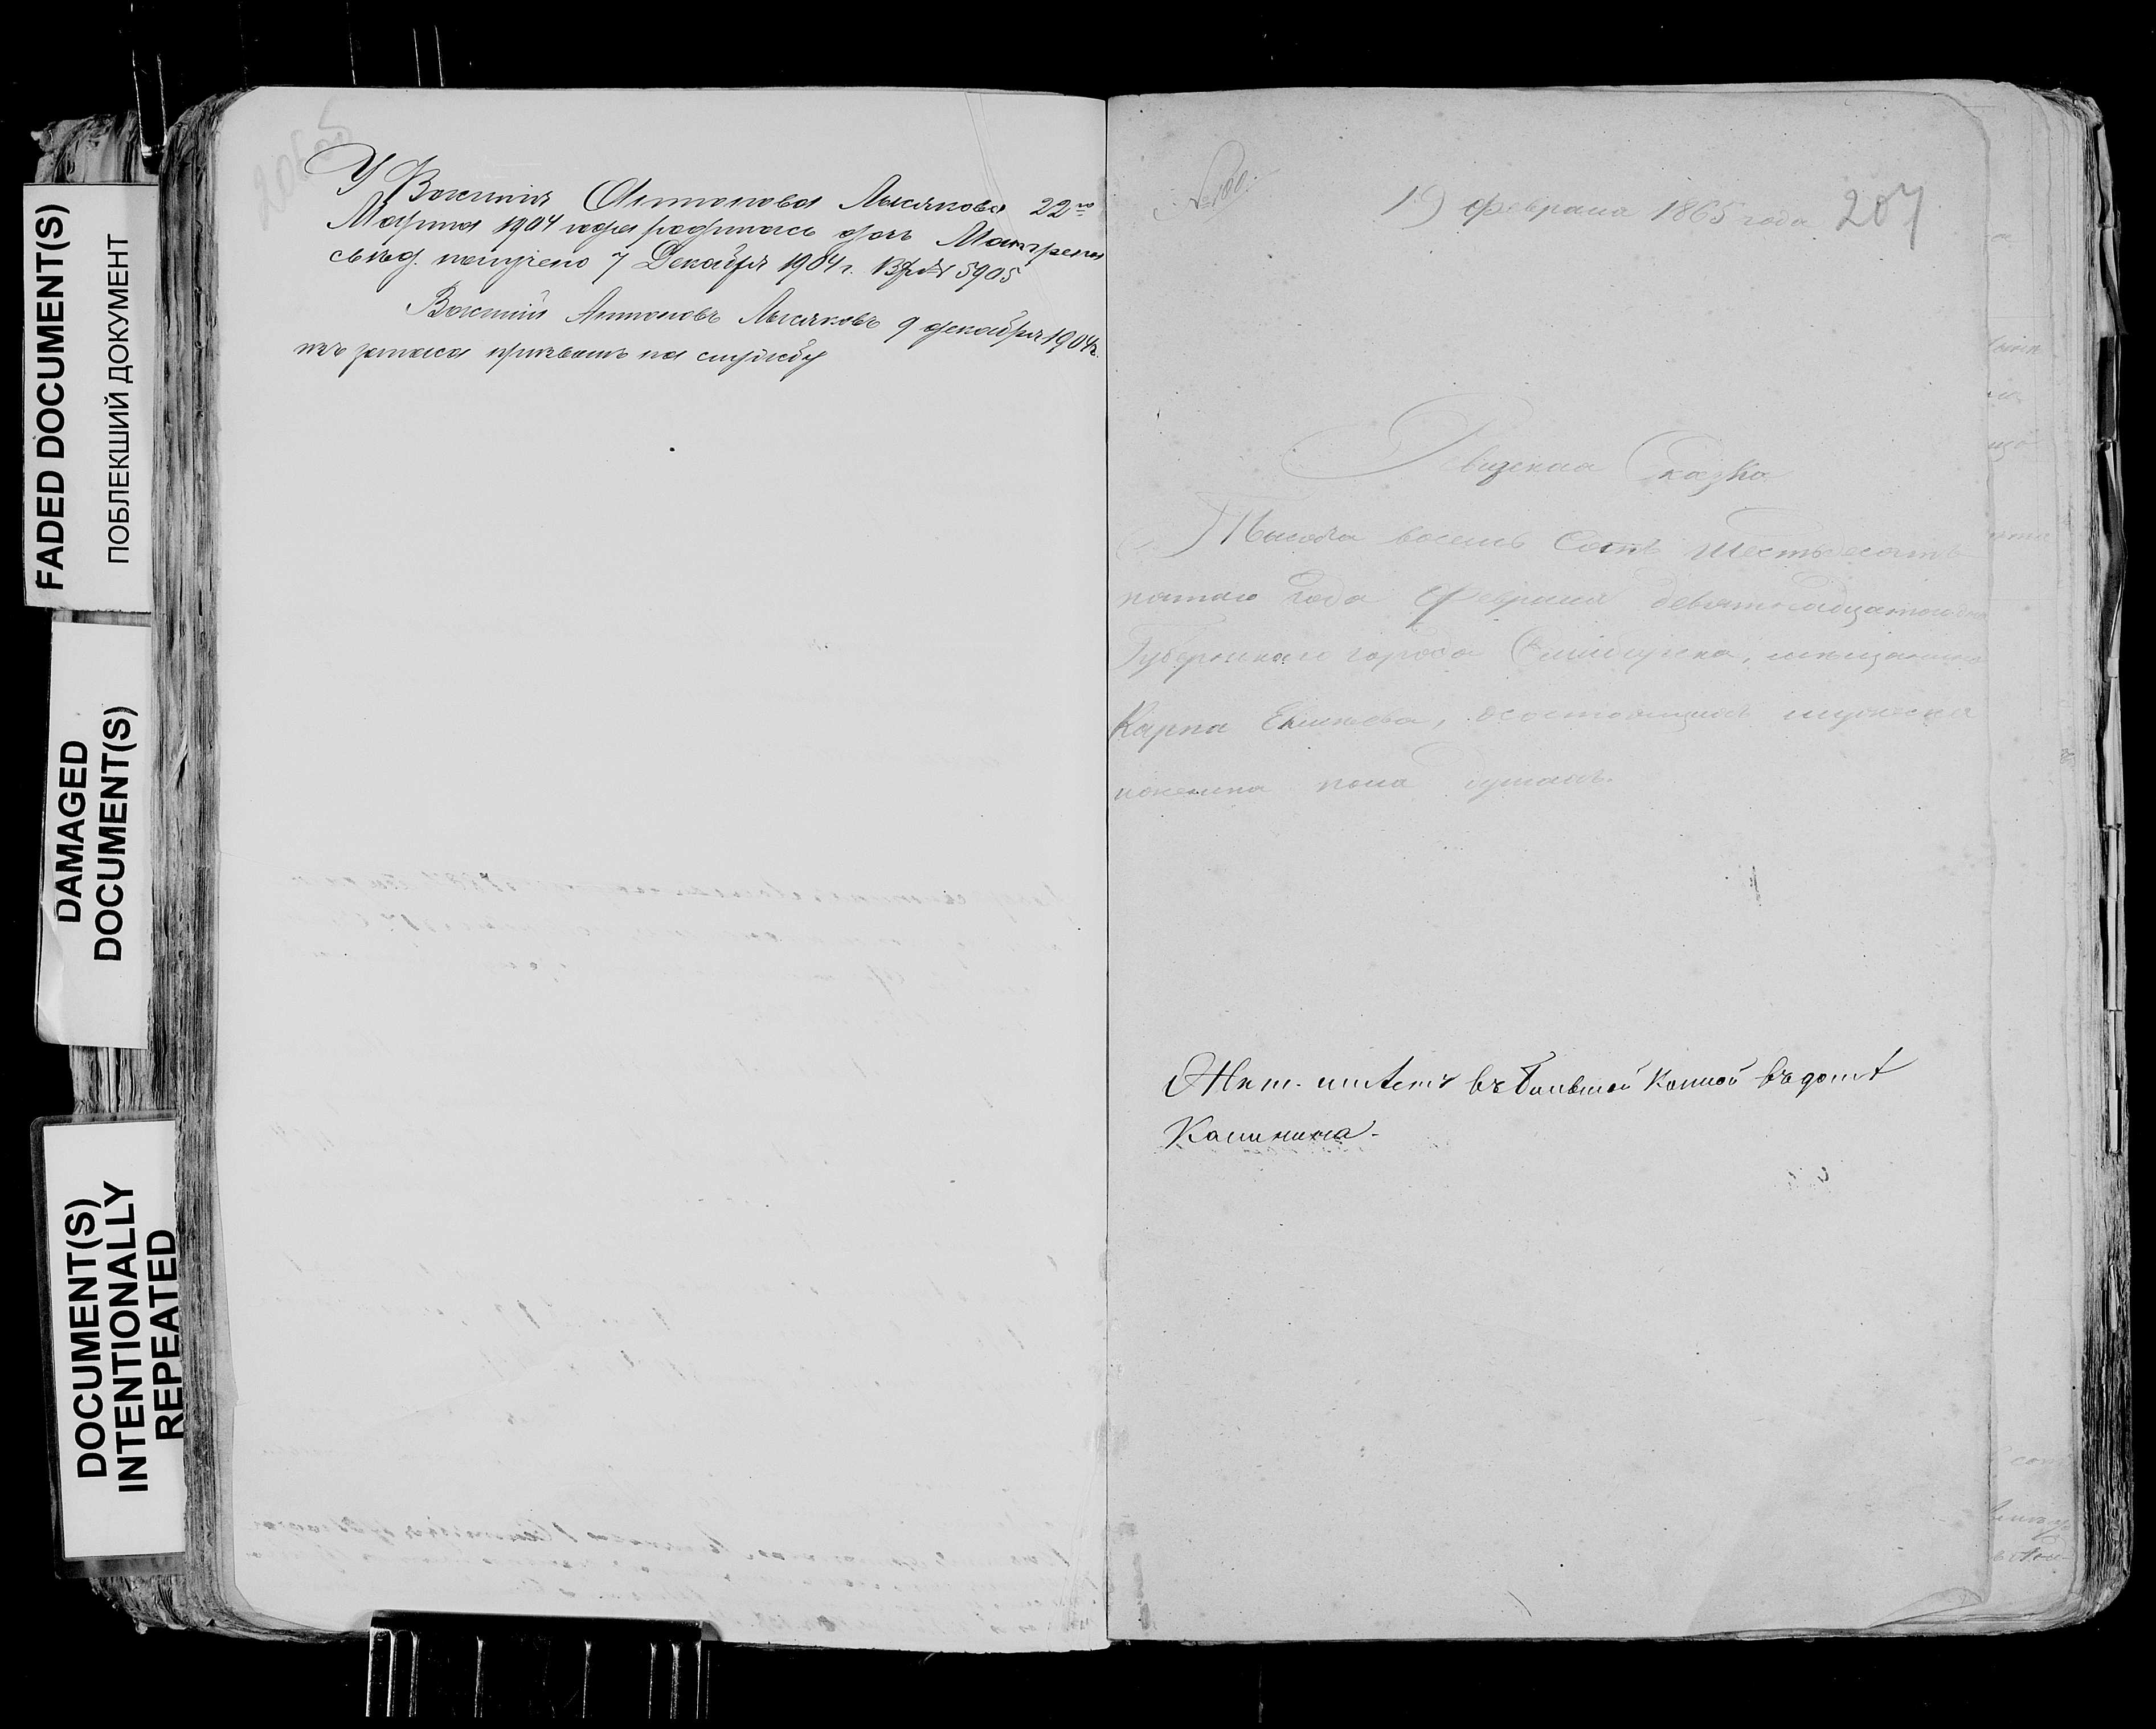 FADED DOCUMENT(S)
ПОБЛЕКШИЙ ДОКУМЕНТ
DAMAGED
DOCUMENT(S)
DOCUMENT(S)
INTENTIONALLY
REPEATED
У Василія Антонова Лысякова 22го
Марта 1904 года родилась дочь Матрена
свѣд. получено 7 Декабря 1904 г. № 5905
Василій Антоновъ Лысяковъ 9 декабря 1904 г.
изъ запаса призванъ на службу
№ 100.
19 февраля 1865 года 207
Ревизская Сказка
Тысяча восемь Сотъ шестьдесятъ
пятаго года Февраля девятнадцатого дня
Губернскаго города Симбирска, мѣщанина
Карпа, о состоящихъ мужеска
и женска пола душахъ.
Жит. имѣетъ въ Большой Конной въ домѣ
Калинина.